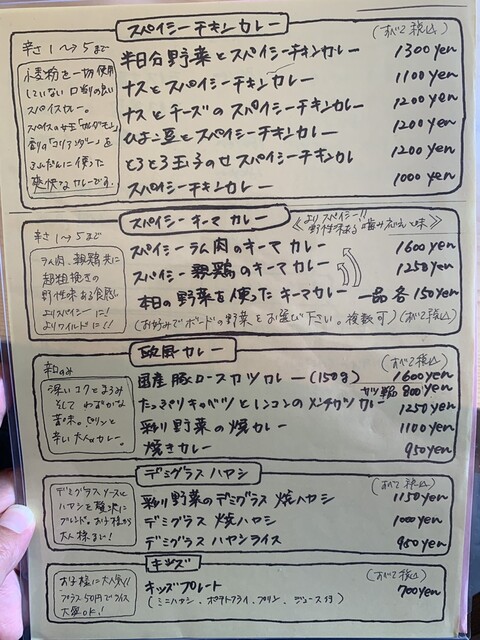 スパイシーチキンカレー
(すべて税込)
辛さ1〜5まで
小麦粉を一切使用
していない口当りの良い
スパイスカレー。
スパイスの女王「カルダモン」
香りの「コリアンダー」を
ふんだんに使った
爽快なカレーです。
半日分野菜とスパイシーチキンカレー 1300yen
ナスとスパイシーチキンカレー 1100yen
ナスとチーズのスパイシーチキンカレー 1200yen
ひよこ豆とスパイシーチキンカレー 1200yen
とろとろ玉子のせスパイシーチキンカレー 1200yen
スパイシーチキンカレー 1000yen
スパイシーキーマカレー
《よりスパイシー!!
野性味ある噛み応えと味》
辛さ1→5まで
ラム肉、親鶏共に
超粗挽きの
野性味ある食感!
よりスパイシーに!
よりワイルドに!!
スパイシーラム肉のキーマカレー 1600yen
スパイシー親鶏のキーマカレー 1250yen
本日の野菜を使ったキーマカレー 一品各150yen
(お好みでボードの野菜をお選び下さい。複数可)(すべて税込)
欧風カレー
(すべて税込)
辛口のみ
深いコクとまろみ
そしてわずかな
苦味。ピリンと
辛い大人カレー。
国産豚ロースカツカレー(150g) 1600yen
カツ単品 800yen
たっぷりキャベツとレンコンのメンチカツカレー 1250yen
彩り野菜の焼カレー 1100yen
焼きカレー 950yen
デミグラスハヤシ
(すべて税込)
デミグラスソースと
ハヤシを贅沢に
ブレンド。お子様から
大人様まで!
彩り野菜のデミグラス焼ハヤシ 1150yen
デミグラス焼ハヤシ 1000yen
デミグラスハヤシライス 950yen
キッズ
(すべて税込)
お子様に大人気!!
プラス50円でライス
大盛OK!
キッズプレート 700yen
(ミニハヤシ、ポテトフライ、プリン、ジュース付)